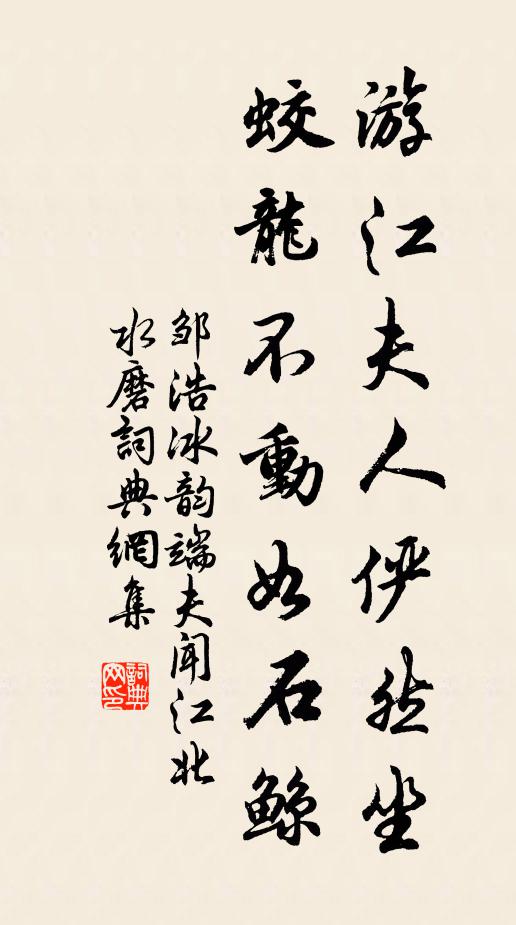 游江夫人俨然坐
蛟龍不動如石鯨
邹浩冰韵端夫闻江北
水磨詞典網集
詞典
网印